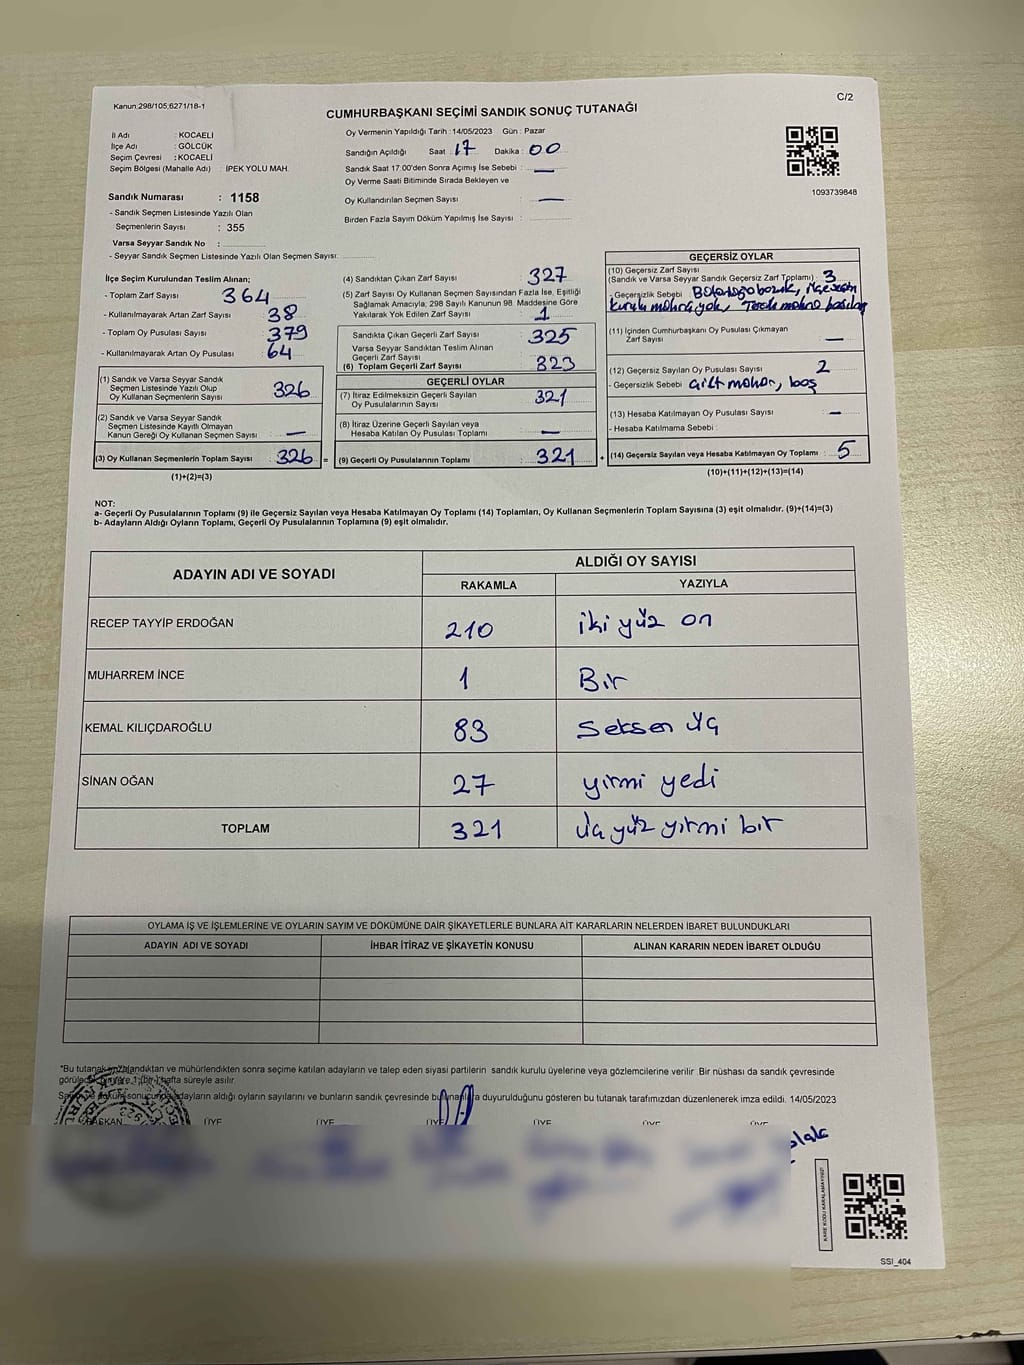 Kanun:298/105;6271/18-1
C/2
CUMHURBAŞKANI SEÇİMİ SANDIK SONUÇ TUTANAĞI
İl Adı : KOCAELİ
İlçe Adı : GÖLCÜK
Seçim Çevresi : KOCAELİ
Seçim Bölgesi (Mahalle Adı) : İPEK YOLU MAH.
Sandık Numarası : 1158
- Sandık Seçmen Listesinde Yazılı Olan
Seçmenlerin Sayısı : 355
Varsa Seyyar Sandık No :
- Seyyar Sandık Seçmen Listesinde Yazılı Olan Seçmen Sayısı:
Oy Vermenin Yapıldığı Tarih : 14/05/2023 Gün : Pazar
Sandığın Açıldığı Saat : 17 Dakika : 00
Sandık Saat 17.00'den Sonra Açımış İse Sebebi : —
Oy Verme Saati Bitiminde Sırada Bekleyen ve
Oy Kullandırılan Seçmen Sayısı : —
Birden Fazla Sayım Döküm Yapılmış İse Sayısı :
1093739848
İlçe Seçim Kurulundan Teslim Alınan;
- Toplam Zarf Sayısı : 364
- Kullanılmayarak Artan Zarf Sayısı : 38
- Toplam Oy Pusulası Sayısı : 379
- Kullanılmayarak Artan Oy Pusulası : 64
(1) Sandık ve Varsa Seyyar Sandık
Seçmen Listesinde Yazılı Olup
Oy Kullanan Seçmenlerin Sayısı : 326
(2) Sandık ve Varsa Seyyar Sandık
Seçmen Listesinde Kayıtlı Olmayan
Kanun Gereği Oy Kullanan Seçmen Sayısı : —
(3) Oy Kullanan Seçmenlerin Toplam Sayısı : 326 =
(1)+(2)=(3)
(4) Sandıktan Çıkan Zarf Sayısı : 327
(5) Zarf Sayısı Oy Kullanan Seçmen Sayısından Fazla İse, Eşitliği
Sağlamak Amacıyla, 298 Sayılı Kanunun 98. Maddesine Göre
Yakılarak Yok Edilen Zarf Sayısı : 1
Sandıkta Çıkan Geçerli Zarf Sayısı : 325
Varsa Seyyar Sandıktan Teslim Alınan
Geçerli Zarf Sayısı :
(6) Toplam Geçerli Zarf Sayısı : 323
GEÇERLİ OYLAR
(7) İtiraz Edilmeksizin Geçerli Sayılan
Oy Pusulalarının Sayısı : 321
(8) İtiraz Üzerine Geçerli Sayılan veya
Hesaba Katılan Oy Pusulası Toplamı : —
(9) Geçerli Oy Pusulalarının Toplamı : 321 +
GEÇERSİZ OYLAR
(10) Geçersiz Zarf Sayısı
(Sandık ve Varsa Seyyar Sandık Geçersiz Zarf Toplamı) : 3
- Geçersizlik Sebebi : ilçe seçim
kurulu mührü yok,
(11) İçinden Cumhurbaşkanı Oy Pusulası Çıkmayan
Zarf Sayısı : —
(12) Geçersiz Sayılan Oy Pusulası Sayısı : 2
- Geçersizlik Sebebi : çift mühür, boş
(13) Hesaba Katılmayan Oy Pusulası Sayısı : —
- Hesaba Katılmama Sebebi :
(14) Geçersiz Sayılan veya Hesaba Katılmayan Oy Toplamı : 5
(10)+(11)+(12)+(13)=(14)
NOT:
a- Geçerli Oy Pusulalarının Toplamı (9) ile Geçersiz Sayılan veya Hesaba Katılmayan Oy Toplamı (14) Toplamları, Oy Kullanan Seçmenlerin Toplam Sayısına (3) eşit olmalıdır. (9)+(14)=(3)
b- Adayların Aldığı Oyların Toplamı, Geçerli Oy Pusulalarının Toplamına (9) eşit olmalıdır.
ADAYIN ADI VE SOYADI ALDIĞI OY SAYISI
RAKAMLA YAZIYLA
RECEP TAYYİP ERDOĞAN 210 iki yüz on
MUHARREM İNCE 1 Bir
KEMAL KILIÇDAROĞLU 83 Seksen üç
SİNAN OĞAN 27 yirmi yedi
TOPLAM 321 üç yüz yirmi bir
OYLAMA İŞ VE İŞLEMLERİNE VE OYLARIN SAYIM VE DÖKÜMÜNE DAİR ŞİKAYETLERLE BUNLARA AİT KARARLARIN NELERDEN İBARET BULUNDUKLARI
ADAYIN ADI VE SOYADI İHBAR İTİRAZ VE ŞİKAYETİN KONUSU ALINAN KARARIN NEDEN İBARET OLDUĞU
*Bu tutanak imzalandıktan ve mühürlendikten sonra seçime katılan adayların ve talep eden siyasi partilerin sandık kurulu üyelerine veya gözlemcilerine verilir. Bir nüshası da sandık çevresinde
görülecek bir yere 1 (bir) hafta süreyle asılır.
Sayım ve döküm sonucunda adayların aldığı oyların sayılarını ve bunların sandık çevresinde bulunanlara duyurulduğunu gösteren bu tutanak tarafımızdan düzenlenerek imza edildi. 14/05/2023
BAŞKAN ÜYE ÜYE ÜYE ÜYE ÜYE ÜYE
KARE KODU KARALAMAYINIZ!
SSI_404